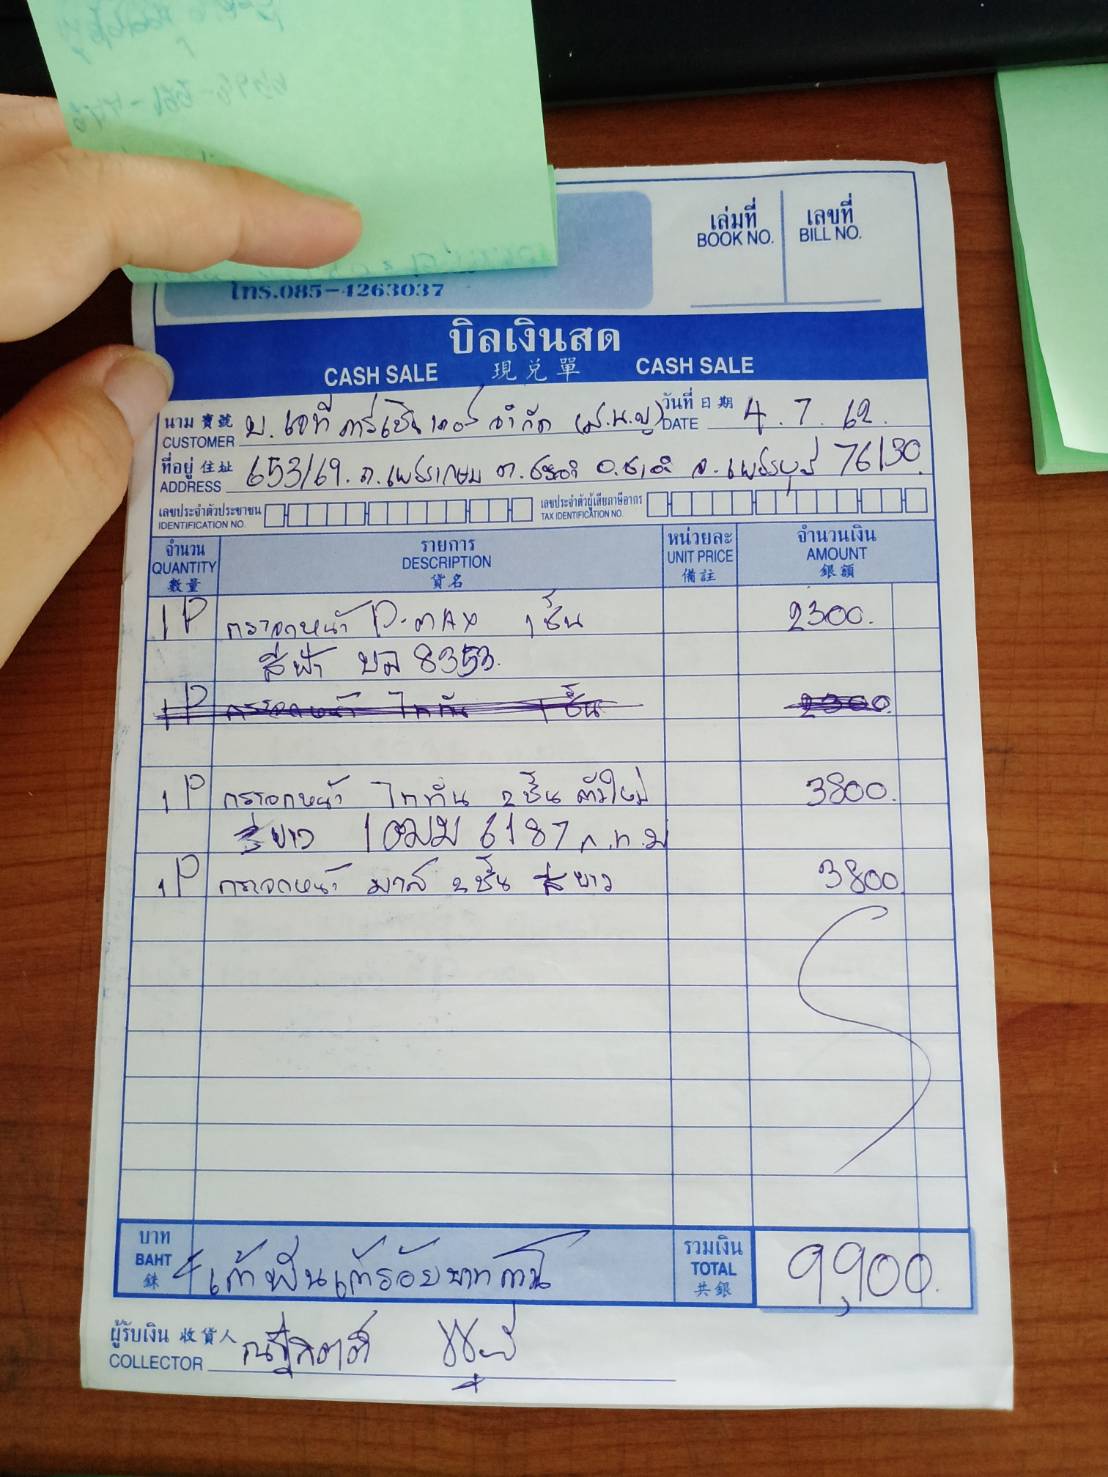 โทร.085-4263037
เล่มที่ เลขที่
BOOK NO. BILL NO.
บิลเงินสด
CASH SALE 現兑單 CASH SALE
นาม 寶號 บ. เอที จำกัด (ส.น.ญ) วันที่ 日期 4.7.62.
CUSTOMER DATE
ที่อยู่ 住址 653/69. ถ.เพชรเกษม ต.ชะอำ อ.ชะอำ จ.เพชรบุรี 76130
ADDRESS
เลขประจำตัวประชาชน เลขประจำตัวผู้เสียภาษีอากร
IDENTIFICATION NO. TAX IDENTIFICATION NO.
จำนวน รายการ หน่วยละ จำนวนเงิน
QUANTITY DESCRIPTION UNIT PRICE AMOUNT
數量 貨名 備註 銀額
1P กระจกหน้า D-MAX 1ชั้น 2300.
สีฟ้า บม 8353.
1P กระจกหน้า ไททัน 1ชั้น 2300.
1P กระจกหน้า ไททัน 2ชั้น ตัวใหม่ 3800.
สีขาว 1ฒม 6187 ก.ท.ม
1P กระจกหน้า มาส 2ชั้น สีขาว 3800
บาท รวมเงิน
BAHT เก้าพันเก้าร้อยบาทถ้วน TOTAL 9,900.
銖 共銀
ผู้รับเงิน 收貨人
COLLECTOR